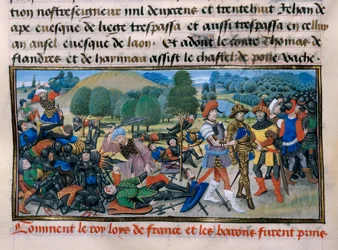 tion nostre seigneur mil deux cens et trente huit Jehan de
ape euesque de liege trespassa et aussi trespassa en cellui
an ansel euesque de laon. Et adont le conte Thomas de
flandres et de haynnau assist le chastel de poille vache.
Comment le roy loys de france et les barons furent prins